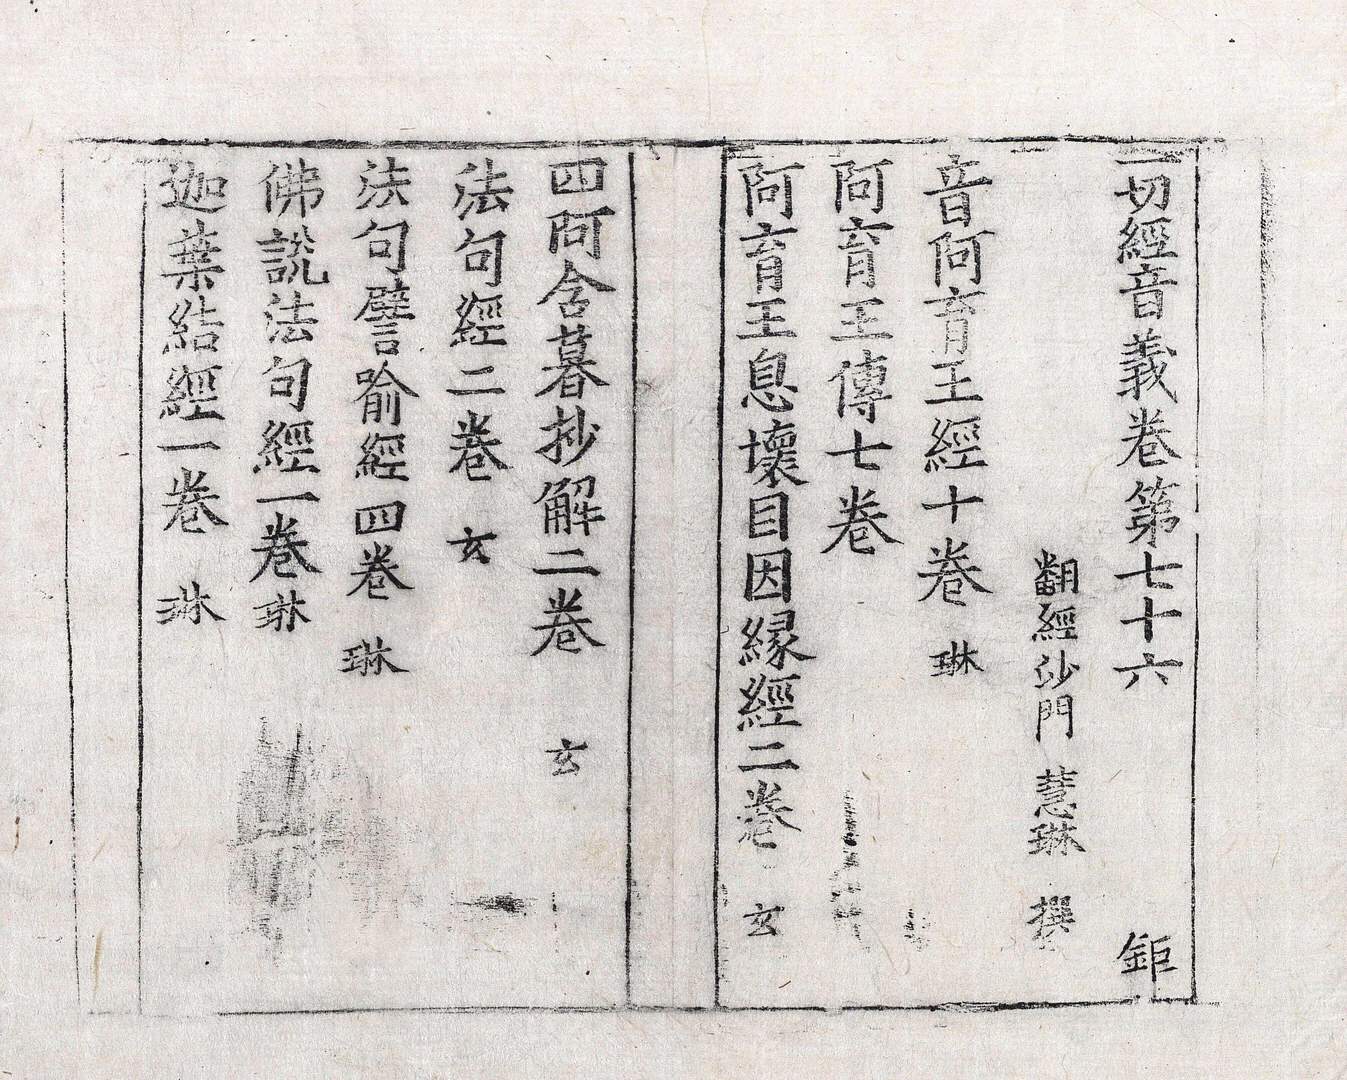 一切經音義卷第七十六 鉅
翻經沙門 慧琳 撰
音阿育王經十卷 琳
阿育王傳七卷
阿育王息壞目因緣經二卷 玄
四阿含暮抄解二卷 玄
法句經二卷 玄
法句譬喻經四卷 琳
佛說法句經一卷 琳
迦葉結經一卷 琳